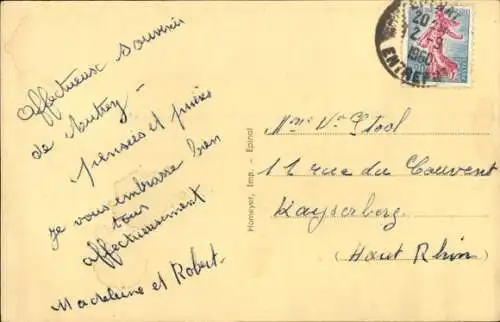 affectueux souvenir
de Autrey -
pensées et prières
je vous embrasse bien
tous
affectueusement
Madeleine et Robert.
Homeyer, Imp. - Epinal
20
2 - 9
1960
Mme Vve Stool
11 rue du Couvent
Kayserberg
(Haut Rhin)